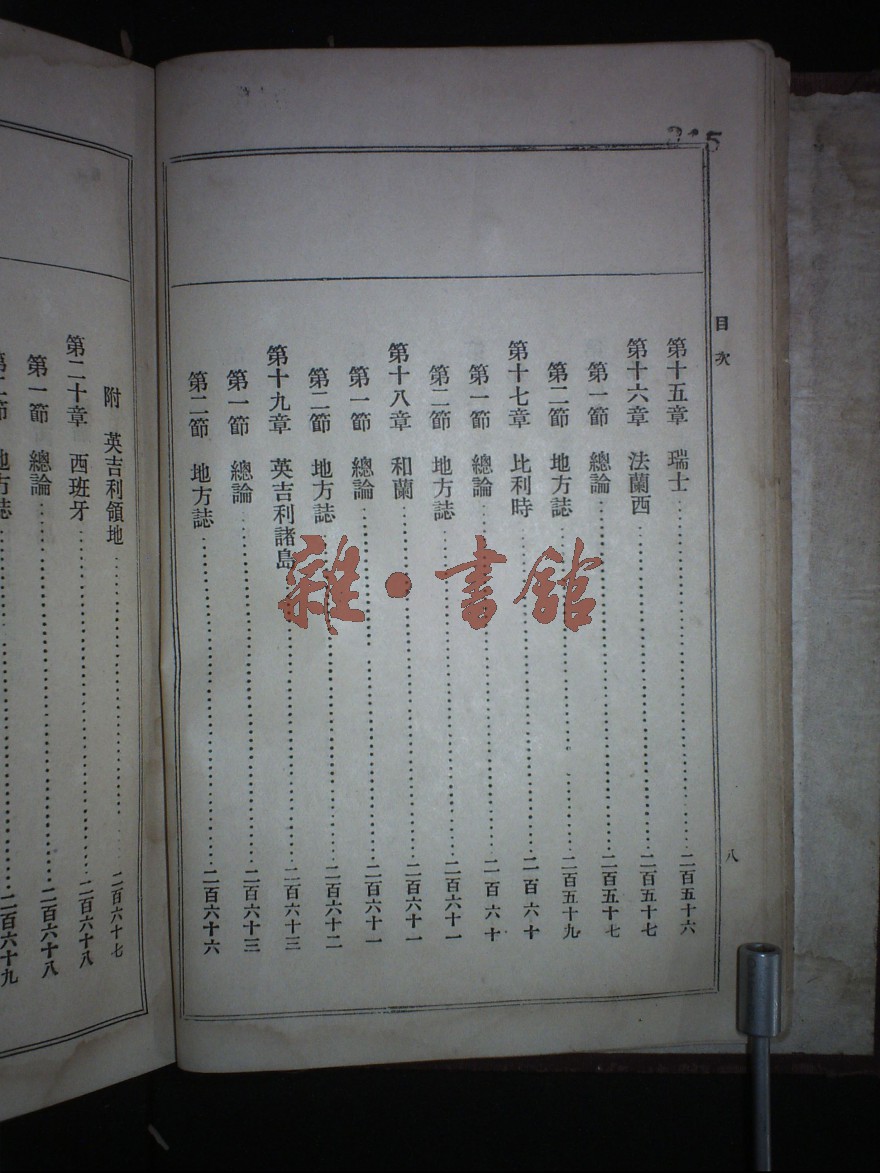 315
目次
第十五章 瑞士……二百五十六
第十六章 法蘭西……二百五十七
第一節 總論……二百五十七
第二節 地方誌……二百五十九
第十七章 比利時……二百六十
第一節 總論……二百六十
第二節 地方誌……二百六十一
第十八章 和蘭……二百六十一
第一節 總論……二百六十一
第二節 地方誌……二百六十二
第十九章 英吉利諸島……二百六十三
第一節 總論……二百六十三
第二節 地方誌……二百六十六
八
附 英吉利領地……二百六十七
第二十章 西班牙……二百六十八
第一節 總論……二百六十八
第二節 地方誌……二百六十九
雜·書館